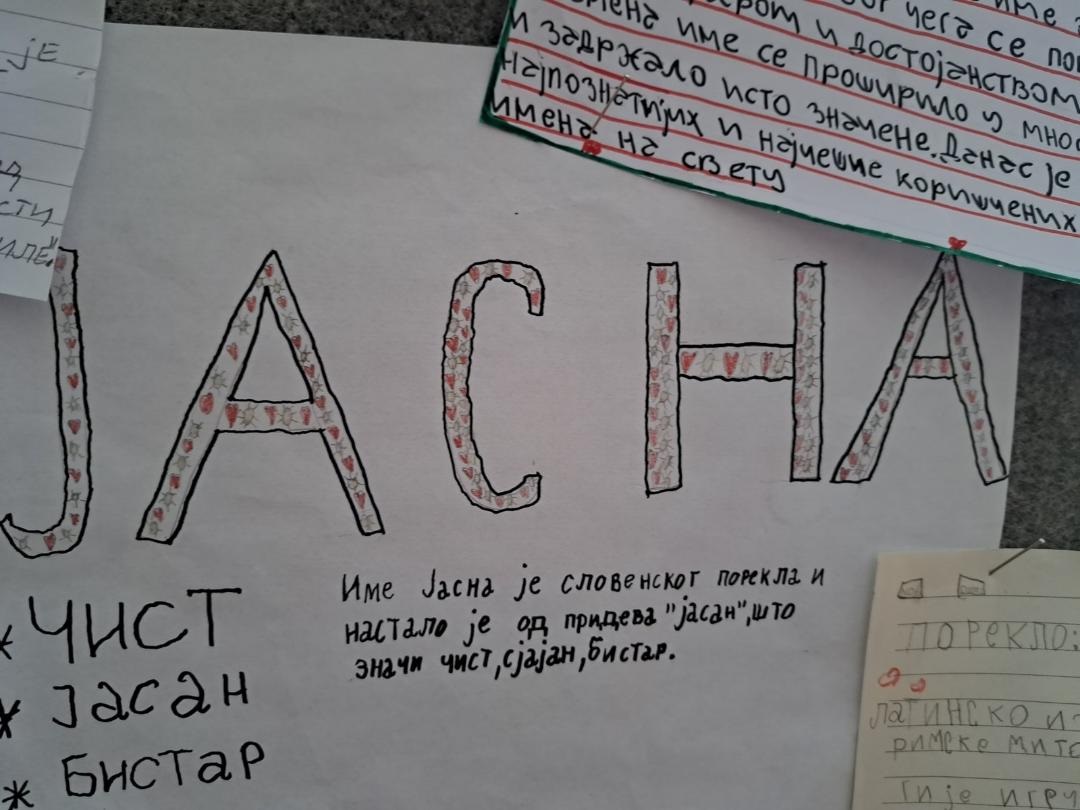 је
сти
чега се
и достојанством
име се проширило у
и задржало исто значене. Данас је
најпознатијих и најчешће коришчених
имена на свету
ЈАСНА
* ЧИСТ
* Јасан
* Бистар
Име Јасна је словенског порекла и
настало је од придева "јасан", што
значи чист, сјајан, бистар.
ПОРЕКЛО:
ЛАТИНСКО И
РИМСКЕ